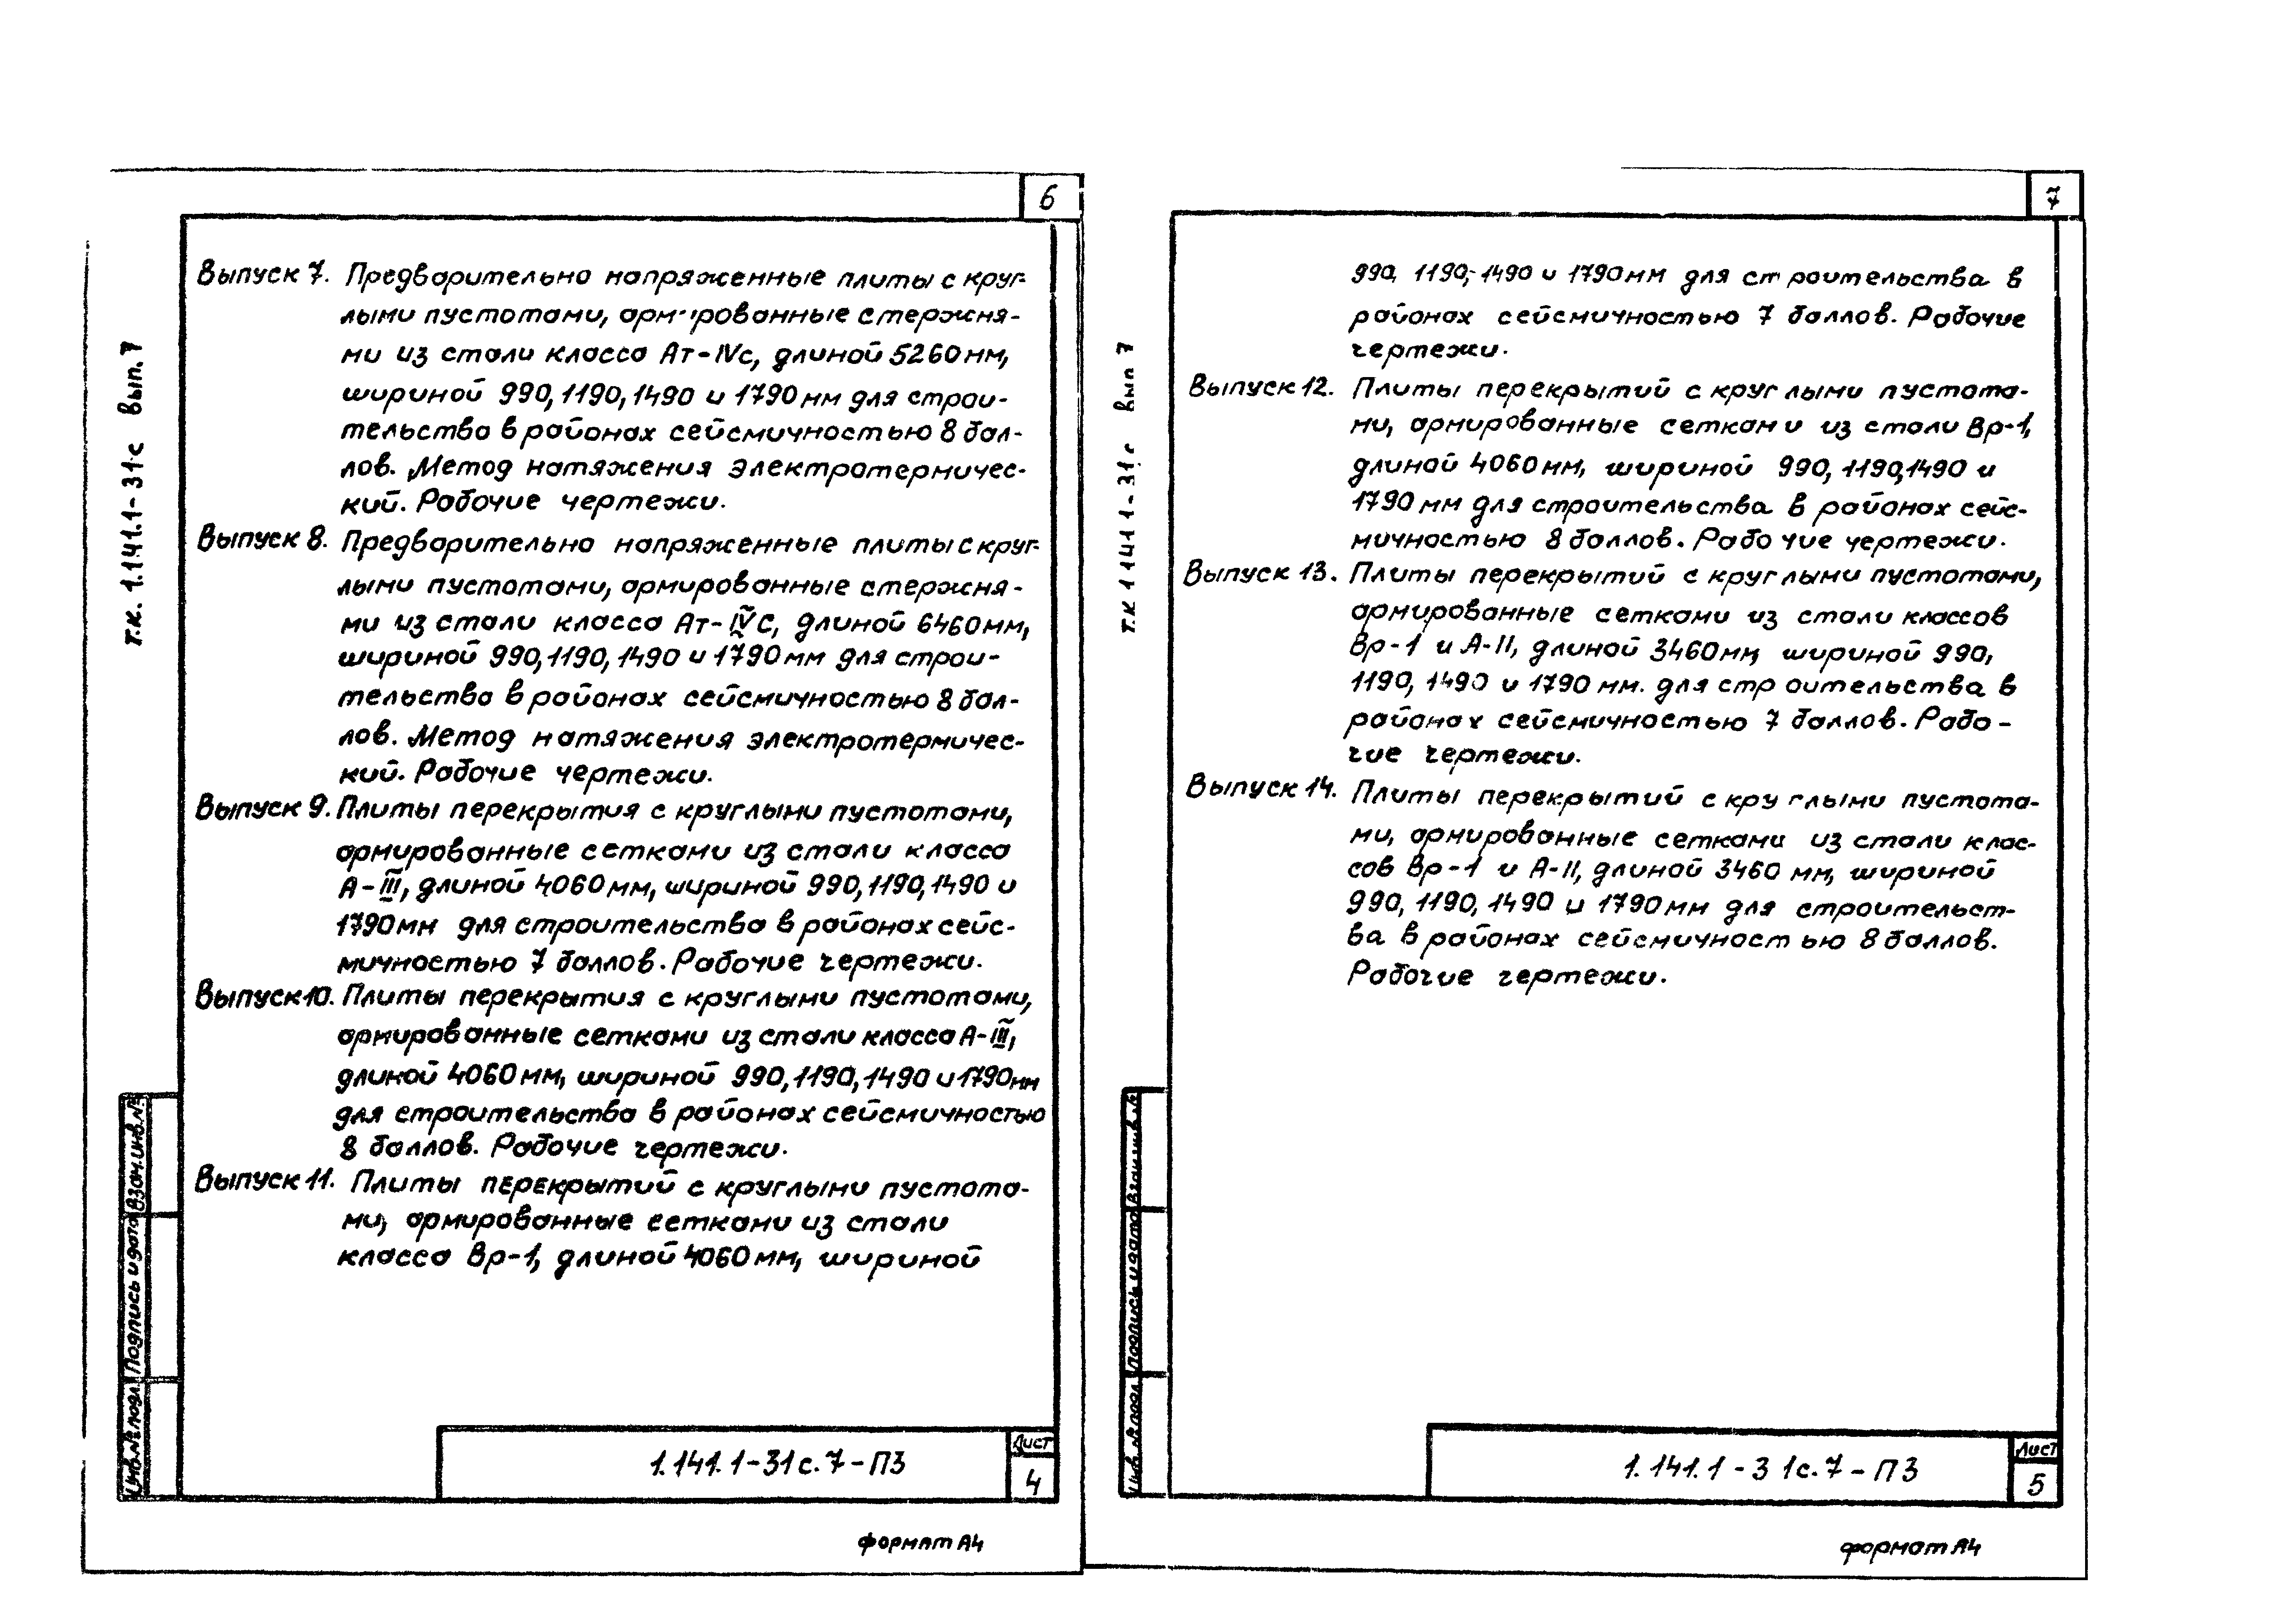 6
т.к. 1.141.1-31с вып. 7
Выпуск 7. Предварительно напряженные плиты с круг-
лыми пустотами, армированные стержня-
ми из стали класса Ат-IVс, длиной 5260мм,
шириной 990, 1190, 1490 и 1790 мм для строи-
тельства в районах сейсмичностью 8 бал-
лов. Метод натяжения электротермичес-
кий. Рабочие чертежи.
Выпуск 8. Предварительно напряженные плиты с круг-
лыми пустотами, армированные стержня-
ми из стали класса Ат-IVС, длиной 6460мм,
шириной 990, 1190, 1490 и 1790 мм для строи-
тельства в районах сейсмичностью 8 бал-
лов. Метод натяжения электротермичес-
кий. Рабочие чертежи.
Выпуск 9. Плиты перекрытия с круглыми пустотами,
армированные сетками из стали класса
А-III, длиной 4060 мм, шириной 990, 1190, 1490 и
1790мм для строительства в районах сейс-
мичностью 7 баллов. Рабочие чертежи.
Выпуск 10. Плиты перекрытия с круглыми пустотами,
армированные сетками из стали класса А-III,
длиной 4060 мм, шириной 990, 1190, 1490 и 1790мм
для строительства в районах сейсмичностью
8 баллов. Рабочие чертежи.
Выпуск 11. Плиты перекрытий с круглыми пустота-
ми, армированные сетками из стали
класса Вр-1, длиной 4060 мм, шириной
Взам.инв.№
Подпись и дата
Инв.№ подл.
1.141.1-31с.7-ПЗ
Лист
4
формат А4
7
т.к 1 141 1-31с вып 7
990, 1190, 1490 и 1790мм для строительства в
районах сейсмичностью 7 баллов. Рабочие
чертежи.
Выпуск 12. Плиты перекрытий с круглыми пустота-
ми, армированные сетками из стали Вр-1,
длиной 4060 мм, шириной 990, 1190,1490 и
1790 мм для строительства в районах сейс-
мичностью 8 баллов. Рабочие чертежи.
Выпуск 13. Плиты перекрытий с круглыми пустотами,
армированные сетками из стали классов
Вр-1 и А-II, длиной 3460мм, шириной 990,
1190, 1490 и 1790 мм. для строительства в
районах сейсмичностью 7 баллов. Рабо-
чие чертежи.
Выпуск 14. Плиты перекрытий с круглыми пустота-
ми, армированные сетками из стали клас-
сов Вр-1 и А-II, длиной 3460 мм, шириной
990, 1190, 1490 и 1790 мм для строительст-
ва в районах сейсмичностью 8 баллов.
Рабочие чертежи.
Взам.инв.№
Подпись и дата
Инв.№ подл.
1.141.1-31с.7-ПЗ
Лист
5
формат А4